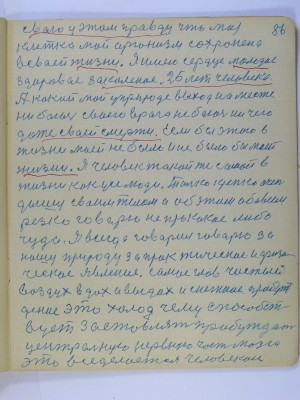 86
Славо у этом правду что моя
клетка мой организм сохронена
в своей жизни. Я имею сердце молодое
здаровае заколеное 25 лет человека.
А какий мой у природе выход на месте
ни боюсь своего врага не боюсь ни чего
даже своей смерти. Если бы этого в
жизни моей не было и не было бы моей
жизни. Я человек такой же самой в
жизни как уси люди. Только крепко
своим телом а об этом обовсем
резко говорю не про какое либо
чудо. Я всегда говорил говорю за
нашу природу за практическое и физи-
ческое явление, самое главное чистый
воздух вдох и выдох и снежное пробуж-
дение это холод чему способст-
вует заставлять пробуждать
центральную нервную часть мозга
это все делается человеком